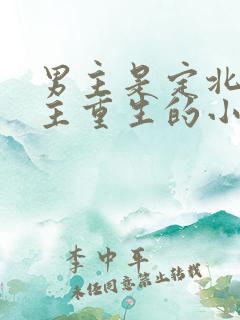 男主是定北
主重生的小
李中平
未经同意禁止转载